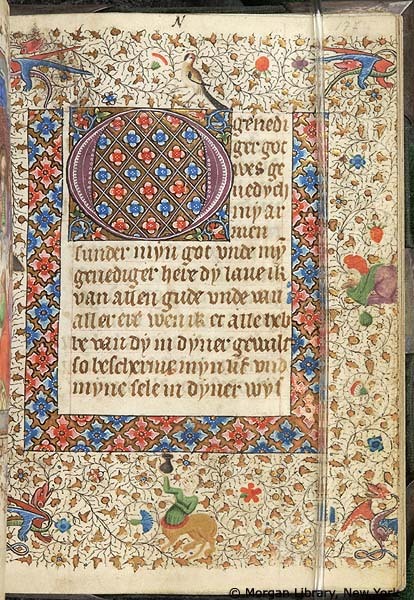 N
O genedi
ger got
wes ge
nedych
my ar
men
sunder myn got vnde mȳ
genediger here dy laue ik
van allen gude vnde van
all er ere wen ik et alle heb
be van dy in dyner gewalt
so bescherme myn lif vnd
myne sele in dyner wys
© Morgan Library, New York